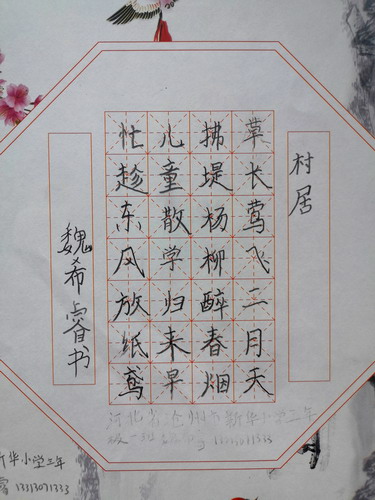 村居
草长莺飞二月天
拂堤杨柳醉春烟
儿童散学归来早
忙趁东风放纸鸢
魏希睿书
河北省沧州市新华小学三年
级一班
新华小学三年